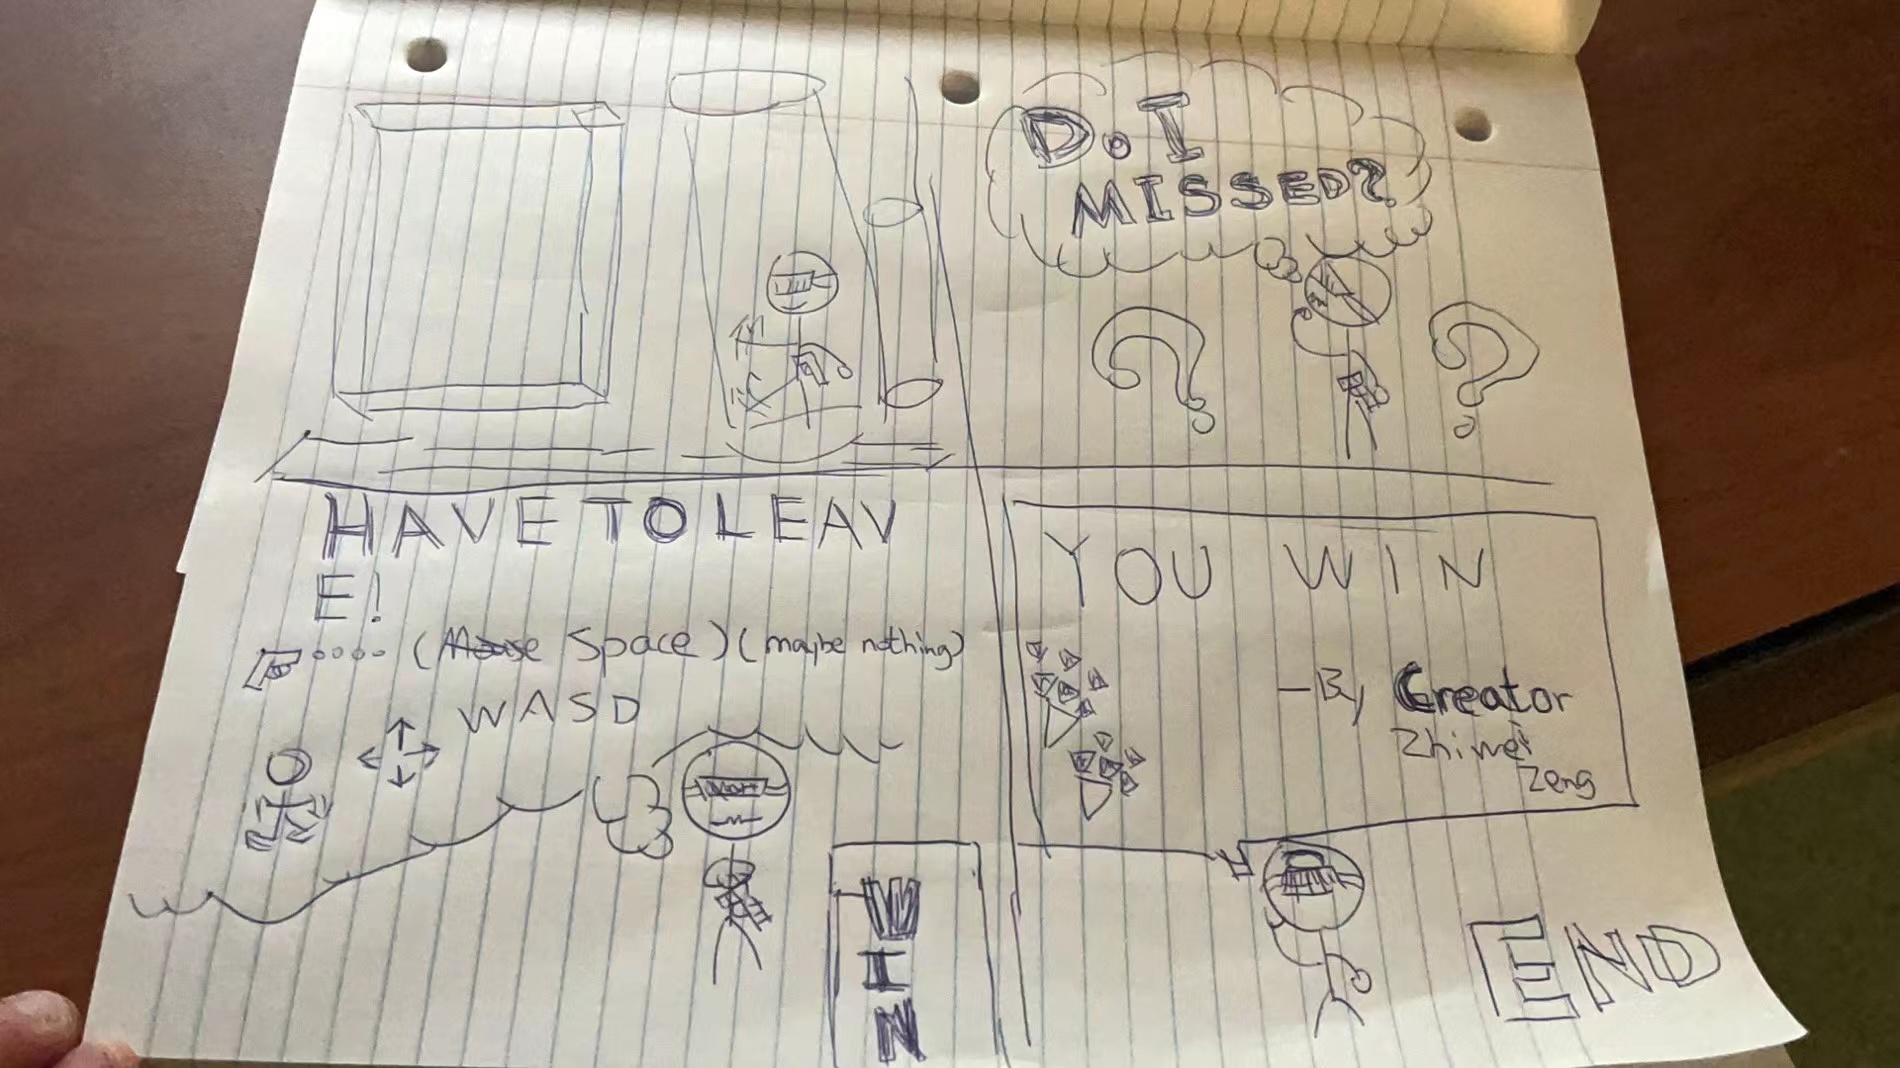 D. I
MISSED?
HAVE TO LEAV
E!
(Mouse Space) (maybe nothing)
WASD
WIN
YOU WIN
-By Creator
Zhiwei
Zeng
END